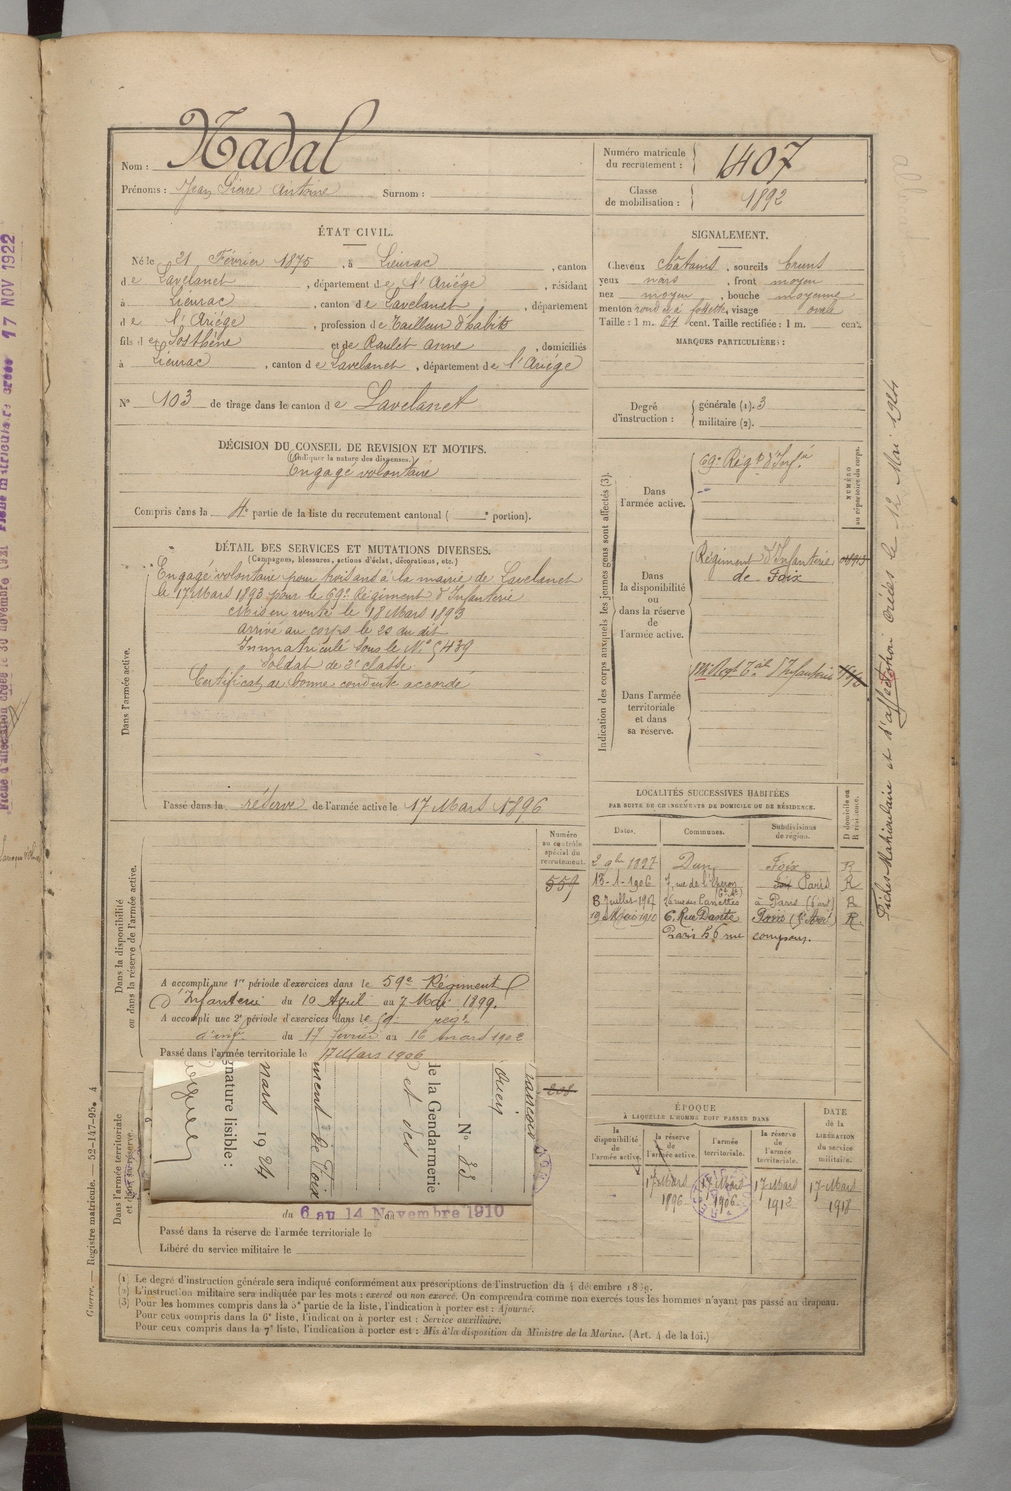 Nom : Nadal
Prénoms : Jean Pierre Antoine Surnom :
Numéro matricule du recrutement : 1407
Classe de mobilisation : 1892
ÉTAT CIVIL.
Né le 21 Février 1875, à Lieurac, canton
de Lavelanet, département de l'Ariège, résidant
à Lieurac, canton de Lavelanet, département
de l'Ariège, profession de Tailleur d'habits
fils de Sosthène et de Raulet Anne, domiciliés
à Lieurac, canton de Lavelanet, département de l'Ariège
N° 103 de tirage dans le canton de Lavelanet
SIGNALEMENT.
Cheveux châtains, sourcils bruns
yeux noirs, front moyen
nez moyen, bouche moyenne
menton rond et à fossette, visage ovale
Taille : 1 m. 64 cent. Taille rectifiée : 1 m. cent.
MARQUES PARTICULIÈRES :
Degré d'instruction : générale (1). 3
militaire (2).
DÉCISION DU CONSEIL DE REVISION ET MOTIFS.
(Indiquer la nature des dispenses.)
Engagé volontaire
Compris dans la 4e partie de la liste du recrutement cantonal ( e portion).
DÉTAIL DES SERVICES ET MUTATIONS DIVERSES.
(Campagnes, blessures, actions d'éclat, décorations, etc.)
Dans l'armée active.
Engagé volontaire pour trois ans à la mairie de Lavelanet
le 17 Mars 1893 pour le 69e Régiment d'Infanterie
Mis en route le 18 Mars 1893
arrivé au corps le 20 du dit
Immatriculé sous le N° 5439
Soldat de 2e classe
Certificat de bonne conduite accordé
Passé dans la réserve de l'armée active le 17 Mars 1896
Indication des corps auxquels les jeunes gens sont affectés (3).
NUMÉRO au répertoire du corps.
Dans l'armée active.
69e Régt d'Infie
Dans la disponibilité ou dans la réserve de l'armée active.
Régiment d'Infanterie
de Foix
Dans l'armée territoriale et dans sa réserve.
Régt Tal d'Infanterie
LOCALITÉS SUCCESSIVES HABITÉES
PAR SUITE DE CHANGEMENTS DE DOMICILE OU DE RÉSIDENCE.
Dates. Communes. Subdivisions de région. D domicile ou R résidence.
Dun Foix R
13-1-1906 7, rue de l'Éperon Paris R
8 Juillet 26 rue des Canettes à Paris R
6, Rue Dante R.
Numéro au contrôle spécial du recrutement.
559
Dans la disponibilité ou dans la réserve de l'armée active.
A accompli une 1re période d'exercices dans le 59e Régiment
d'Infanterie du 10 Avril au 7 Mai 1899.
A accompli une 2e période d'exercices dans le 59 regt
d'inf. du 17 février au 16 mars 1902
Passé dans l'armée territoriale le 17 Mars 1906
Dans l'armée territoriale et dans sa réserve.
gnature lisible :
mars 1924
ment de Foix
et des
de la Gendarmerie
N° 33
du 6 au 14 Novembre 1910
Passé dans la réserve de l'armée territoriale le
Libéré du service militaire le
ÉPOQUE
A LAQUELLE L'HOMME DOIT PASSER DANS
DATE de la LIBÉRATION du service militaire.
la disponibilité de l'armée active. la réserve de l'armée active. l'armée territoriale. la réserve de l'armée territoriale.
17 Mars 1896 17 Mars 1906 17 Mars 1912 17 Mars 1918
(1) Le degré d'instruction générale sera indiqué conformément aux prescriptions de l'instruction du 4 décembre 1889.
(2) L'instruction militaire sera indiquée par les mots : exercé ou non exercé. On comprendra comme non exercés tous les hommes n'ayant pas passé au drapeau.
(3) Pour les hommes compris dans la 5e partie de la liste, l'indication à porter est : Ajourné.
Pour ceux compris dans la 6e liste, l'indication à porter est : Service auxiliaire.
Pour ceux compris dans la 7e liste, l'indication à porter est : Mis à la disposition du Ministre de la Marine. (Art. 4 de la loi.)
Guerre. — Registre matricule. — 52-147-95. 4
Fiches Matriculaire et d'affectation créées le 12 Mai 1924
Fiche matriculaire créée 17 NOV 1922
Fiche d'affectation créée le 30 novembre 1921